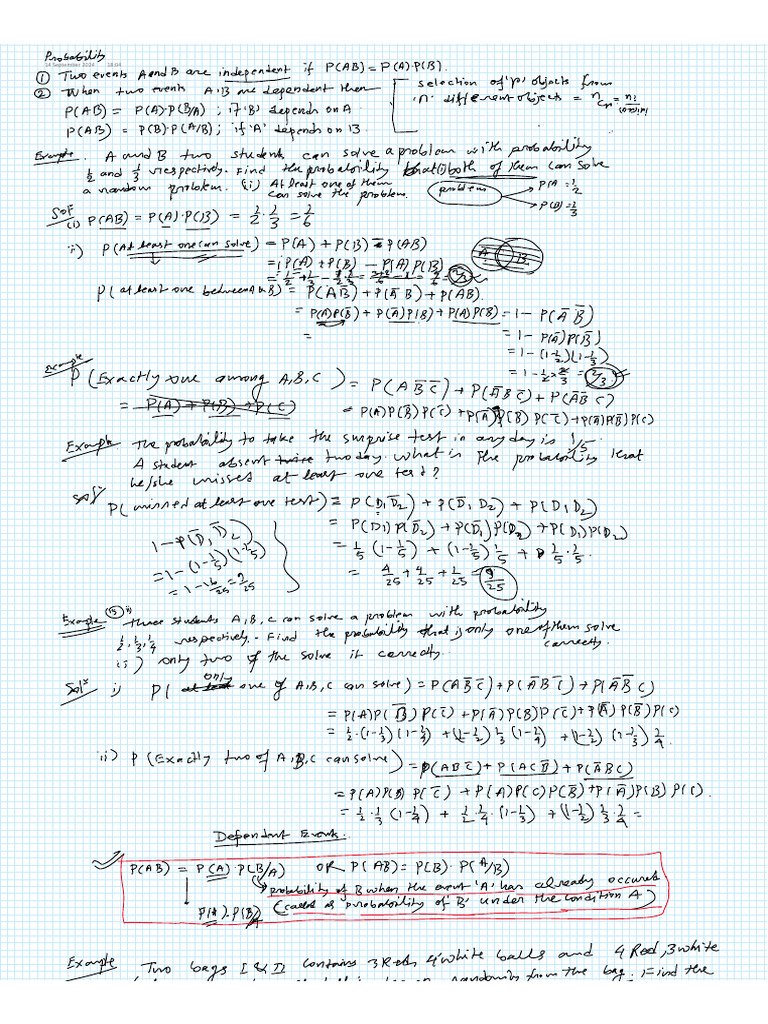 Probability
14 September 2024 18:04
① Two events A and B are independent if P(AB) = P(A)·P(B).
② When two events A, B are dependent then
P(AB) = P(A)·P(B/A) ; if 'B' depends on A.
P(AB) = P(B)·P(A/B) ; if 'A' depends on B.
selection of 'r' objects from
'n' different objects = nCr = n!
Example. A and B two students can solve a problem with probability
1/2 and 1/3 respectively. Find the probability that (i) both of them can solve
a random problem. (ii) At least one of them
can solve the problem.
problem
P(A) = 1/2
P(B) = 1/3
Solⁿ
(i) P(AB) = P(A)·P(B) = 1/2 · 1/3 = 1/6
ii) P(At least one can solve) = P(A) + P(B) - P(AB)
= P(A) + P(B) - P(A) P(B)
A B
= 1/2 + 1/3 - 1/2 · 1/3 = = 2/3
P(at least one between A & B) = P(AB̄) + P(Ā B) + P(AB).
= P(A)P(B̄) + P(Ā)P(B) + P(A)P(B) = 1 - P(Ā B̄)
= = 1 - P(Ā)P(B̄)
= 1 - (1-1/2)(1-1/3)
= 1 - 1/2 × 2/3 = 2/3
Example
P(Exactly one among A, B, C) = P(A B̄ C̄) + P(Ā B C̄) + P(Ā B̄ C)
= P(A) + P(B) + P(C) = P(A)P(B̄)P(C̄) + P(Ā)P(B) P(C̄) + P(Ā)P(B̄)P(C)
Example. The probability to take the surprise test in any day is 1/5.
A student absent twice two day. What is the probability that
he/she missed at least one test?
Solⁿ
P(missed at least one test) = P(D₁D̄₂) + P(D̄₁ D₂) + P(D₁ D₂)
= P(D₁)P(D̄₂) + P(D̄₁)P(D₂) + P(D₁)P(D₂)
= 1/5 (1-1/5) + (1-1/5) 1/5 + 1/5 · 1/5.
= 4/25 + 4/25 + 1/25 = 9/25
1 - P(D̄₁ D̄₂)
= 1 - (1-1/5)(1-1/5)
= 1 - 16/25 = 9/25
Example i) Three students A, B, C can solve a problem with probability
1/2, 1/3, 1/4 respectively. Find the probability that i) only one of them solve
correctly.
ii) only two of the solve it correctly.
Solⁿ i) P( at least only one of A, B, C can solve) = P(A B̄ C̄) + P(Ā B C̄) + P(Ā B̄ C)
= P(A)P(B̄)P(C̄) + P(Ā)P(B)P(C̄) + P(Ā)P(B̄)P(C)
= 1/2·(1-1/3)(1-1/4) + (1-1/2) 1/3 (1-1/4) + (1-1/2)(1-1/3) 1/4.
ii) P(Exactly two of A, B, C can solve) = P(ABC̄) + P(ACB̄) + P(ĀBC)
= P(A)P(B) P(C̄) + P(A)P(C)P(B̄) + P(Ā)P(B) P(C).
= 1/2·1/3 (1-1/4) + 1/2·1/4·(1-1/3) + (1-1/2) 1/3·1/4 =
Dependent Events.
P(AB) = P(A)·P(B/A) OR P(AB) = P(B)·P(A/B)
probability of B when the event 'A' has already occured
P(A)·P(B) (called as probability of 'B' under the condition A)
Example Two bags I & II contains 3 Red, 4 white balls and 4 Red, 3 white
randomly from the bag. Find the